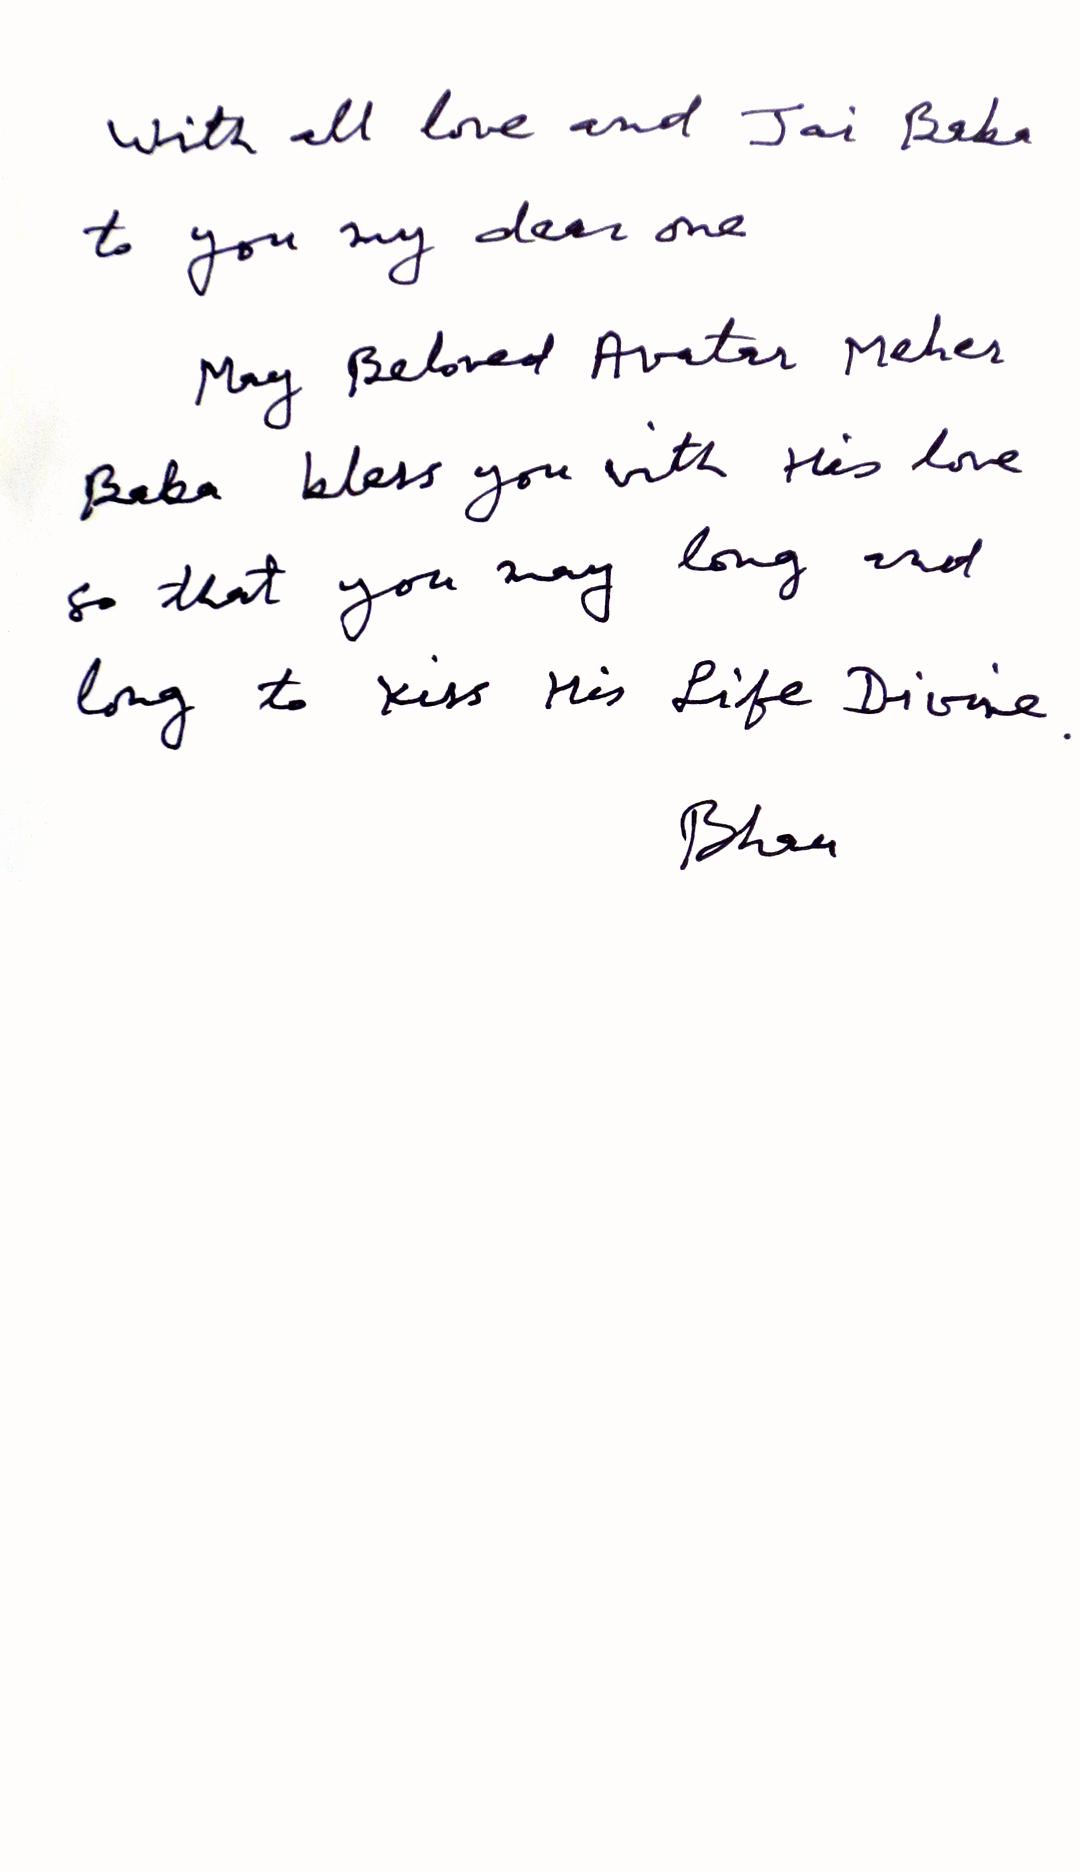 With all love and Jai Baba
to you my dear one
May Beloved Avatar Meher
Baba bless you with His love
so that you may long and
long to kiss His Life Divine.
Bhau